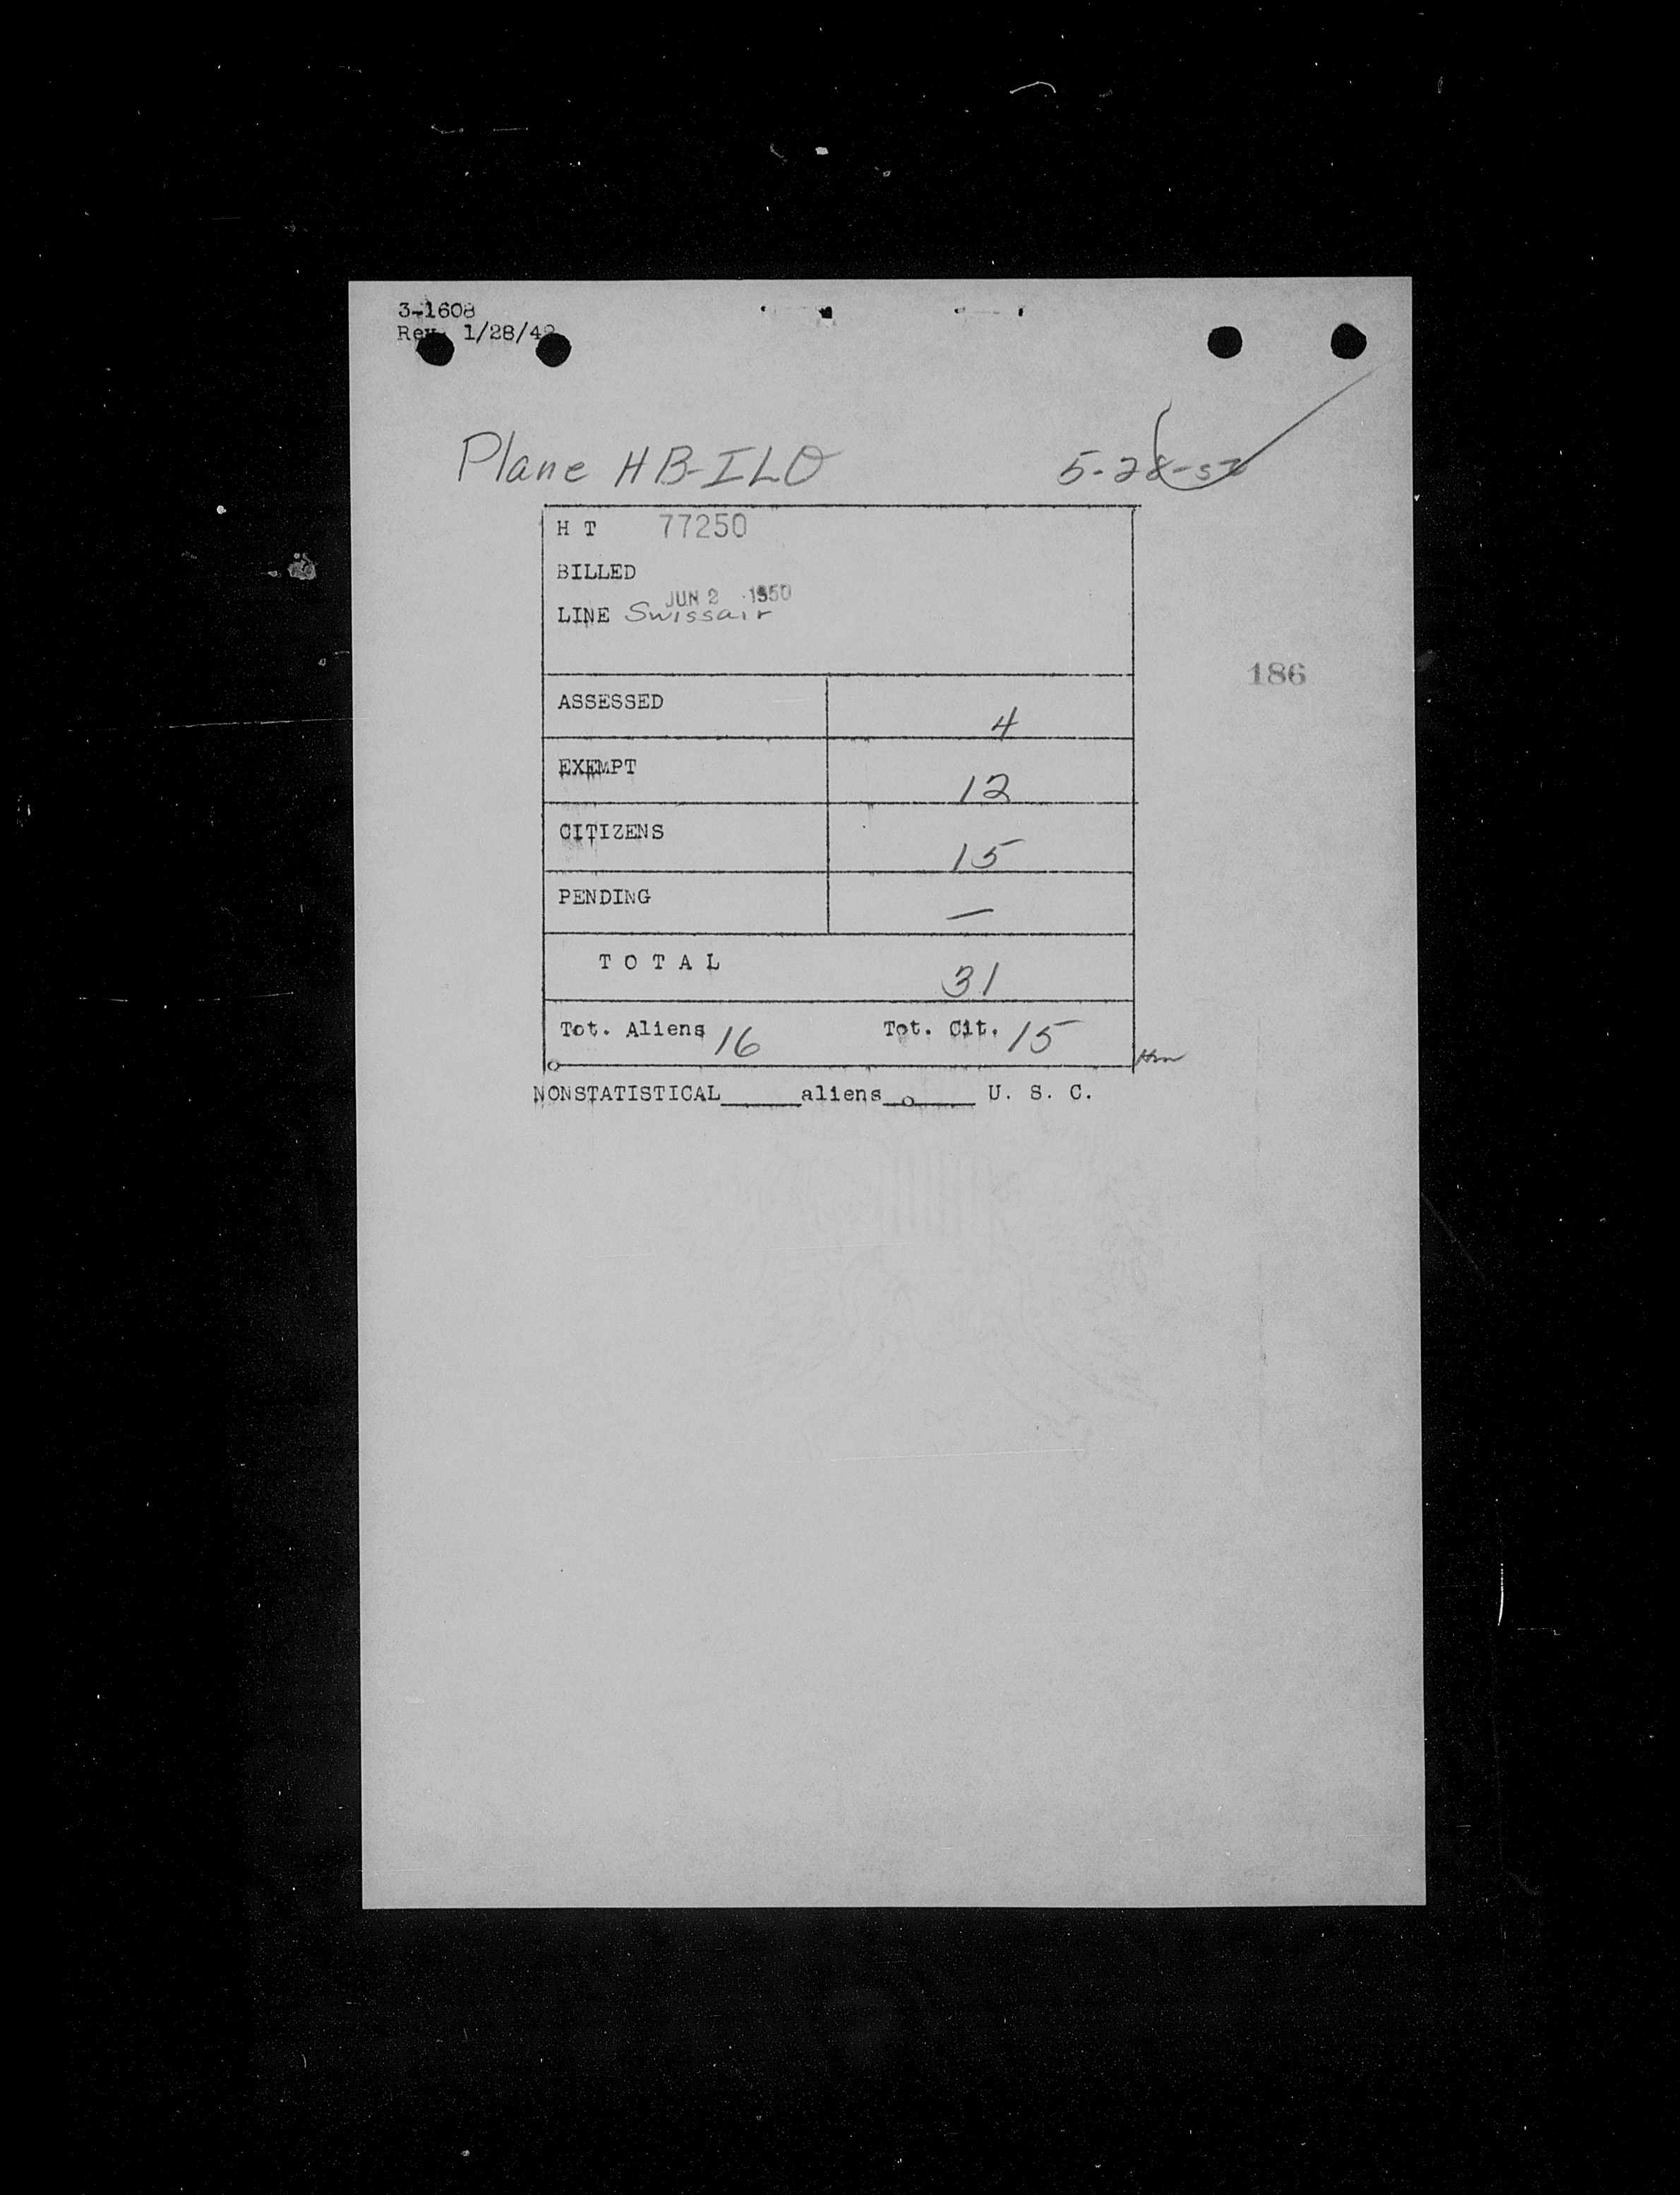 3-1608
Rev. 1/28/48
Plane HB-ILO 5-28-50
H T 77250
BILLED
JUN 2 1950
LINE Swissair
186
ASSESSED 4
EXEMPT 12
CITIZENS 15
PENDING —
T O T A L 31
Tot. Aliens 16 Tot. Cit. 15
NONSTATISTICAL_____aliens__o____ U. S. C.